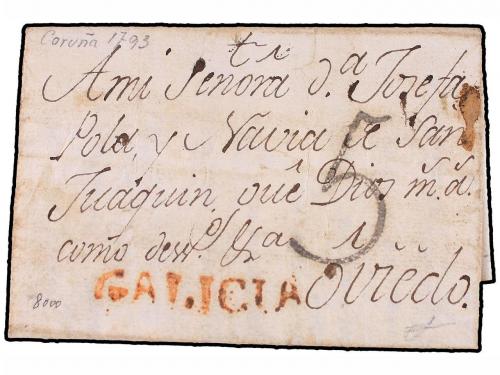 Coruña 1793
A mi Señora d.ª Josefa
Pola, y Navia de San
Juaquin, que Dios m.s a.s
como dew.º &ª
5
GALICIA Oviedo.
8000